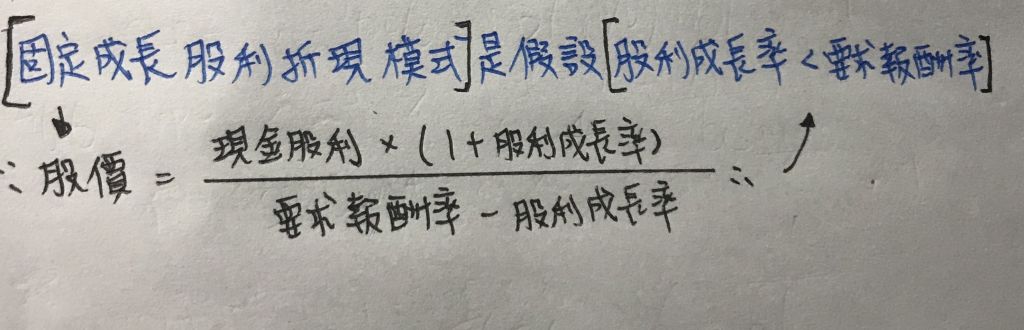 [固定成長股利折現模式]是假設[股利成長率<要求報酬率]
∵股價 = 現金股利 × (1+股利成長率) ∴
要求報酬率 - 股利成長率